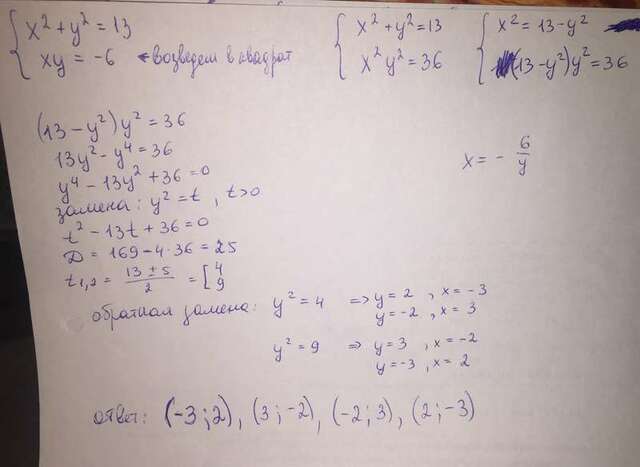 { x² + y² = 13
xy = -6 ← возведем в квадрат
{ x² + y² = 13
x² y² = 36
{ x² = 13 - y²
(13 - y²) y² = 36
(13 - y²) y² = 36
13y² - y⁴ = 36
y⁴ - 13y² + 36 = 0
замена: y² = t , t > 0
t² - 13t + 36 = 0
D = 169 - 4·36 = 25
t₁,₂ = (13 ± 5)/2 = [ 4
9
x = - 6/y
обратная замена: y² = 4 => y = 2 , x = -3
y = -2 , x = 3
y² = 9 => y = 3 , x = -2
y = -3 , x = 2
ответ: (-3; 2), (3; -2), (-2; 3), (2; -3)